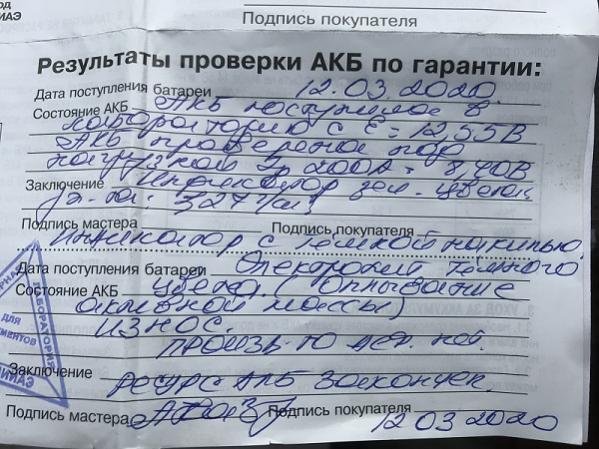 Подпись покупателя
Результаты проверки АКБ по гарантии:
Дата поступления батареи 12.03.2020
Состояние АКБ АКБ поступила в
лабораторию с Е = 12,55В
АКБ проверена под
нагрузкой 200А = 8,40В
Заключение Индикатор зел. цвета
Подпись мастера Подпись покупателя
Индикатор с
Дата поступления батареи Электролит темного
Состояние АКБ цвета (оплывание
активной массы)
износ.
нет.
Заключение Ресурс АКБ закончен.
Подпись мастера Подпись покупателя 12 03 2020
ЛАБОРАТОРИЯ
ДЛЯ